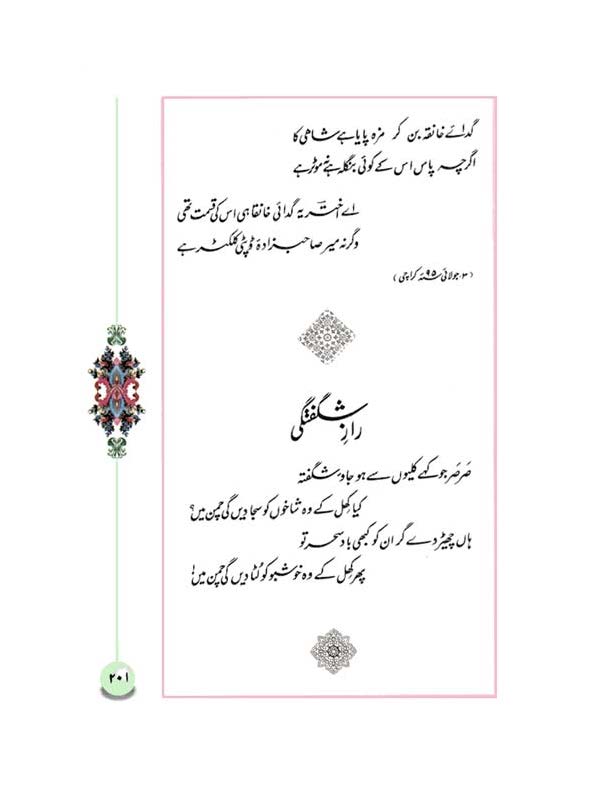 گدائے خانقہ بن کر مزہ پایا ہے شاہی کا
اگرچہ پاس اس کے کوئی بنگلہ ہے نے موٹر ہے
اے اخترؔ یہ گدائی خانقاہی اس کی قسمت تھی
وگرنہ میر صاحبزادۂ ڈپٹی کلکٹر ہے
(۳؍جولائی ۹۵ء کراچی)
رازِ شگفتگی
صَرصَر جو کہے کلیوں سے ہو جاؤ شگفتہ
کیا کھِل کے وہ شاخوں کو سجا دیں گی چمن میں؟
ہاں چھیڑ دے گر ان کو کبھی بادِ سحر تو
پھر کھِل کے وہ خوشبو کو لُٹا دیں گی چمن میں!
۲۰۱